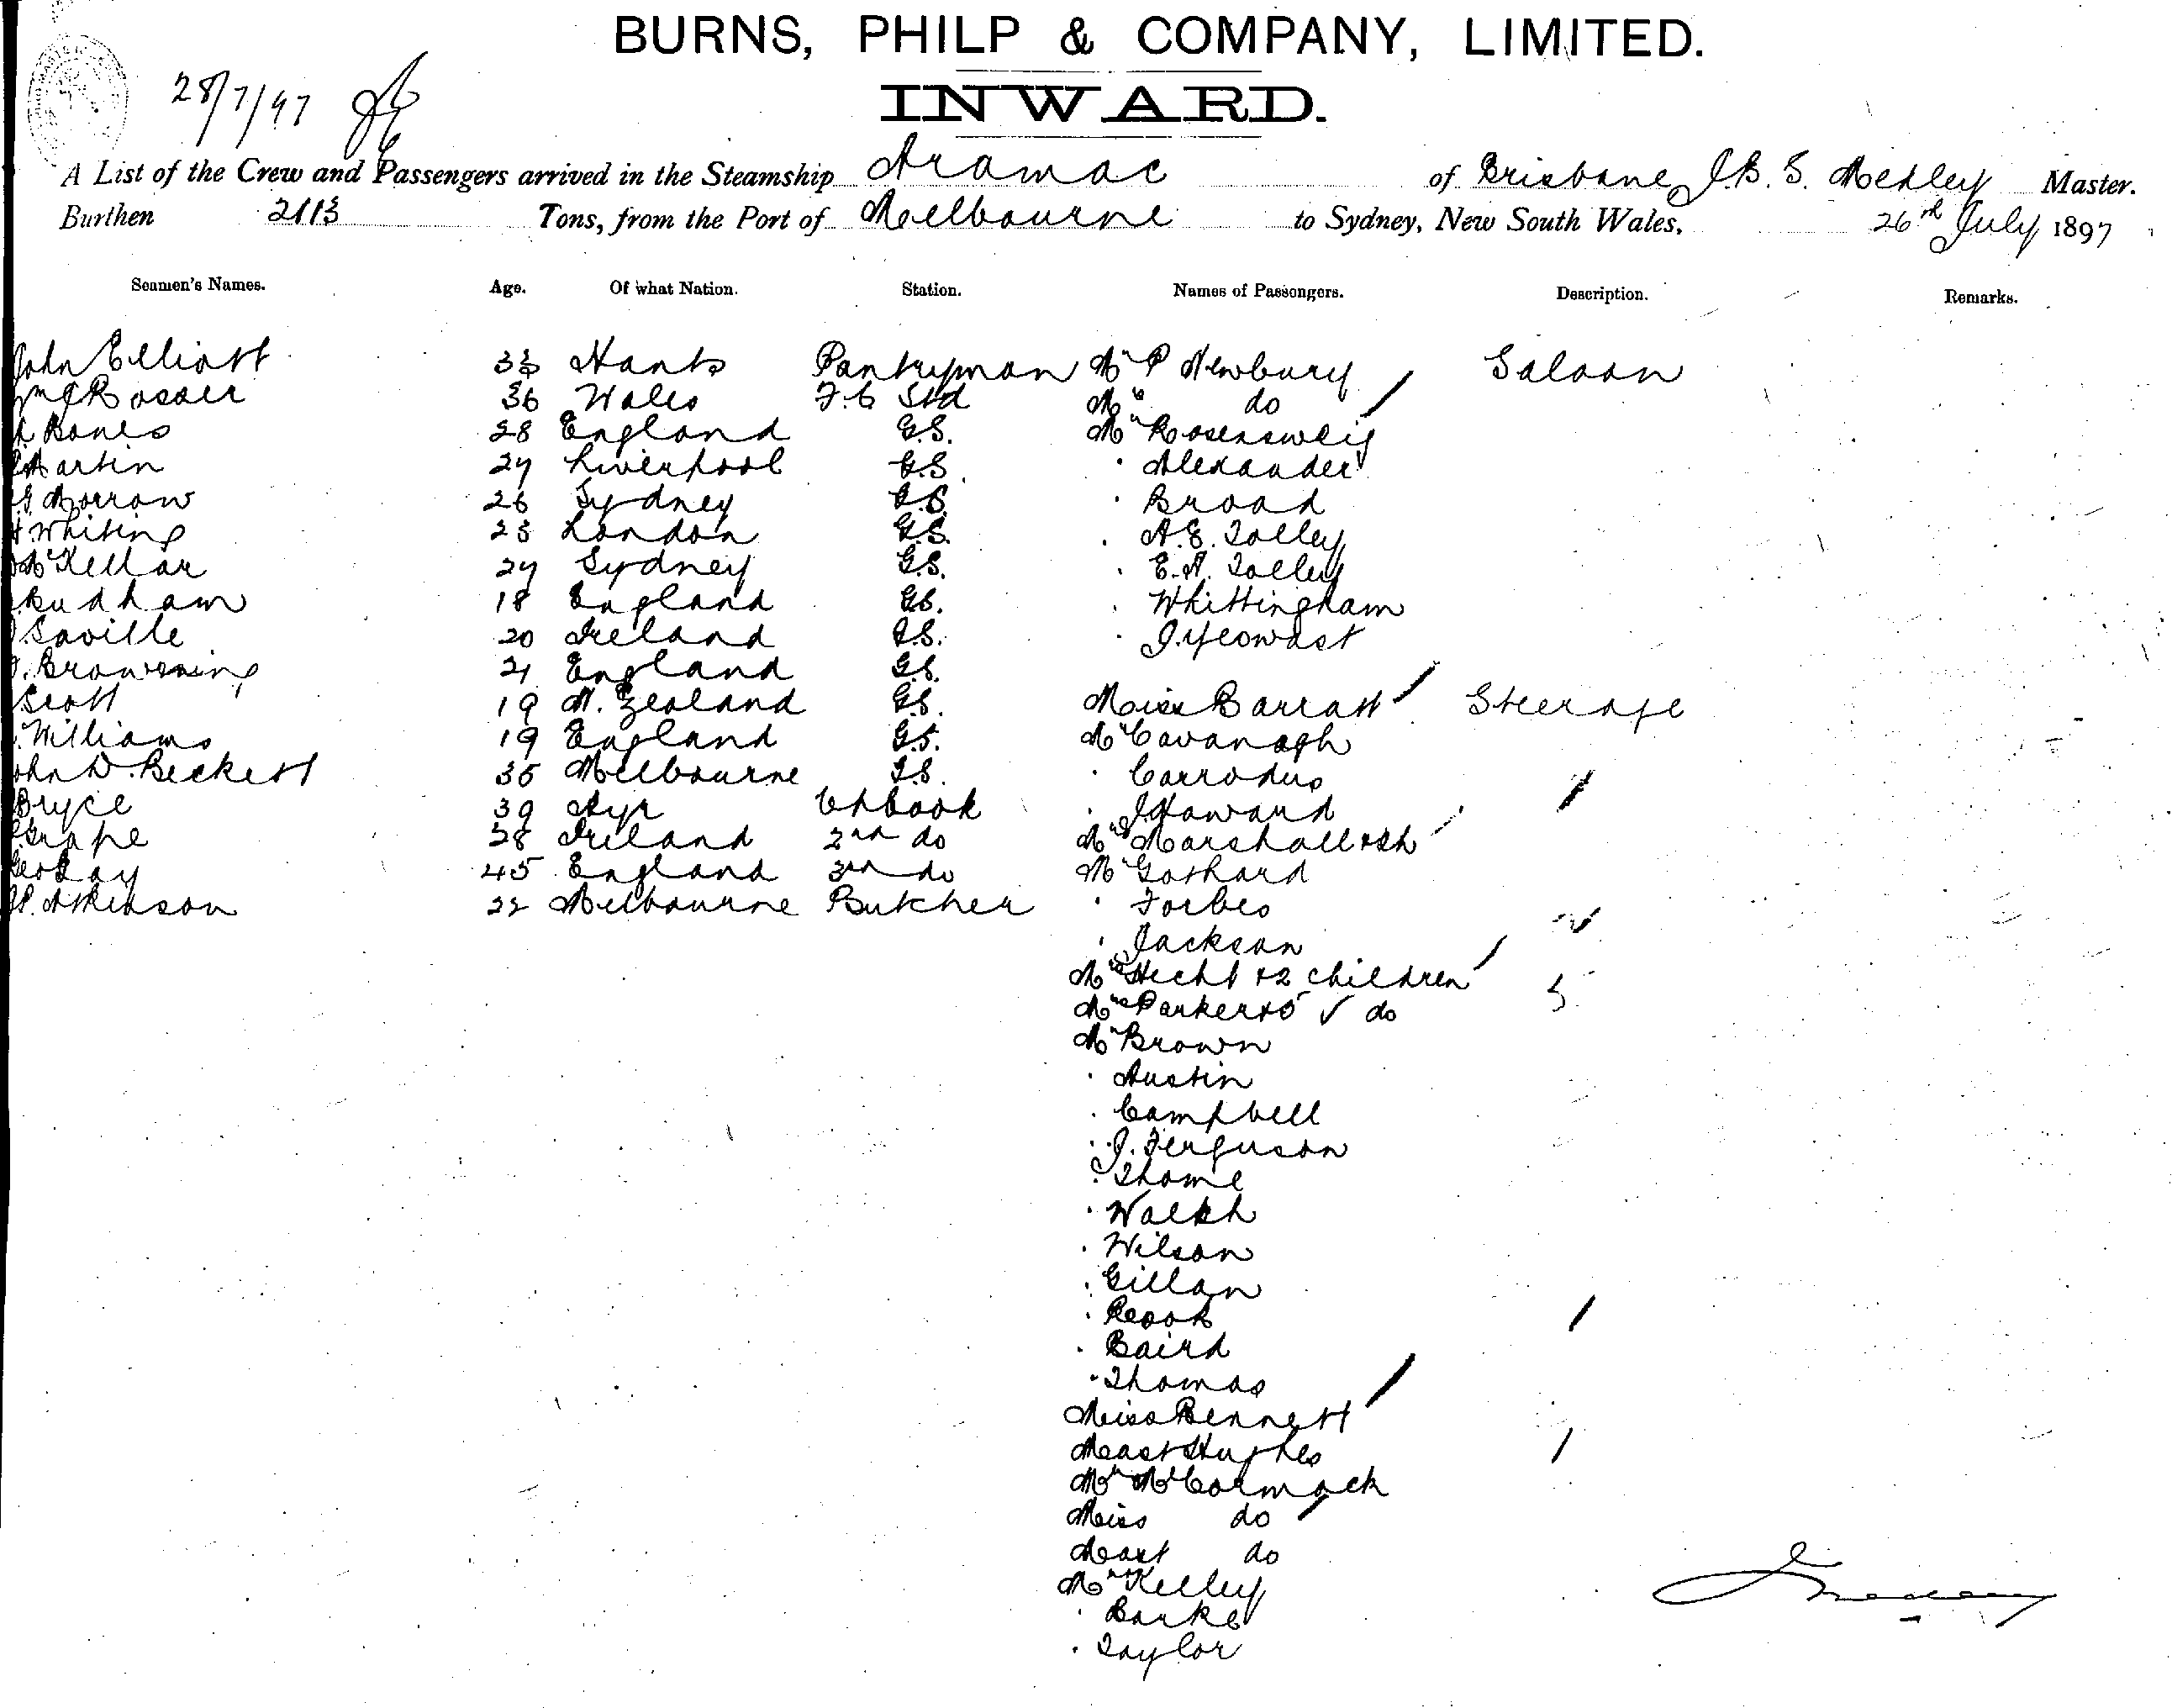 BURNS, PHILP & COMPANY, LIMITED.
28/7/97
INWARD.
A List of the Crew and Passengers arrived in the Steamship Aramac of Brisbane, J.B.S. Medley Master.
Burthen 2113 Tons, from the Port of Melbourne to Sydney, New South Wales, 26th July 1897
Seamen's Names. Age. Of what Nation. Station. Names of Passengers. Description. Remarks.
John Elliott 33 Hants Pantryman Mr P Newbury Saloon
Rosser 36 Wales F.C Std Mrs do
Bones 28 England G.S. Mr Rosensweig
Martin 27 Liverpool G.S. " Alexander
Morrow 26 Sydney G.S. " Broad
H. Whiting 23 London G.S. " A.E. Tolley
McKellar 27 Sydney G.S. " E.A. Tolley
Rudham 18 England G.S. " Whittingham
Saville 20 Ireland G.S. " J. Yeowart
Browning 21 England G.S.
Scott 19 N. Zealand G.S. Miss Barratt Steerage
Williams 19 England G.S. Mr Cavanagh
John D. Beckett 35 Melbourne G.S. " Carrodus
Bryce 39 Ayr Ch Cook " J Howard
Grape 28 Ireland 2nd do Mrs Marshall + ch
Geo Day 45 England 3rd do Mr Gothard
Atkinson 22 Melbourne Butcher " Forbes
" Jackson
Mrs Hecht + 2 children
Mrs Parker + 5 do 5
Mr Brown
" Austin
" Campbell
" J. Ferguson
" Thome
" Walsh
" Wilson
" Gillan
" Cook
" Baird
" Thomas
Miss Bennett
Mast Hughes
Mr McCormack
Miss do
Mast do
Mr Kelley
" Barke
" Taylor